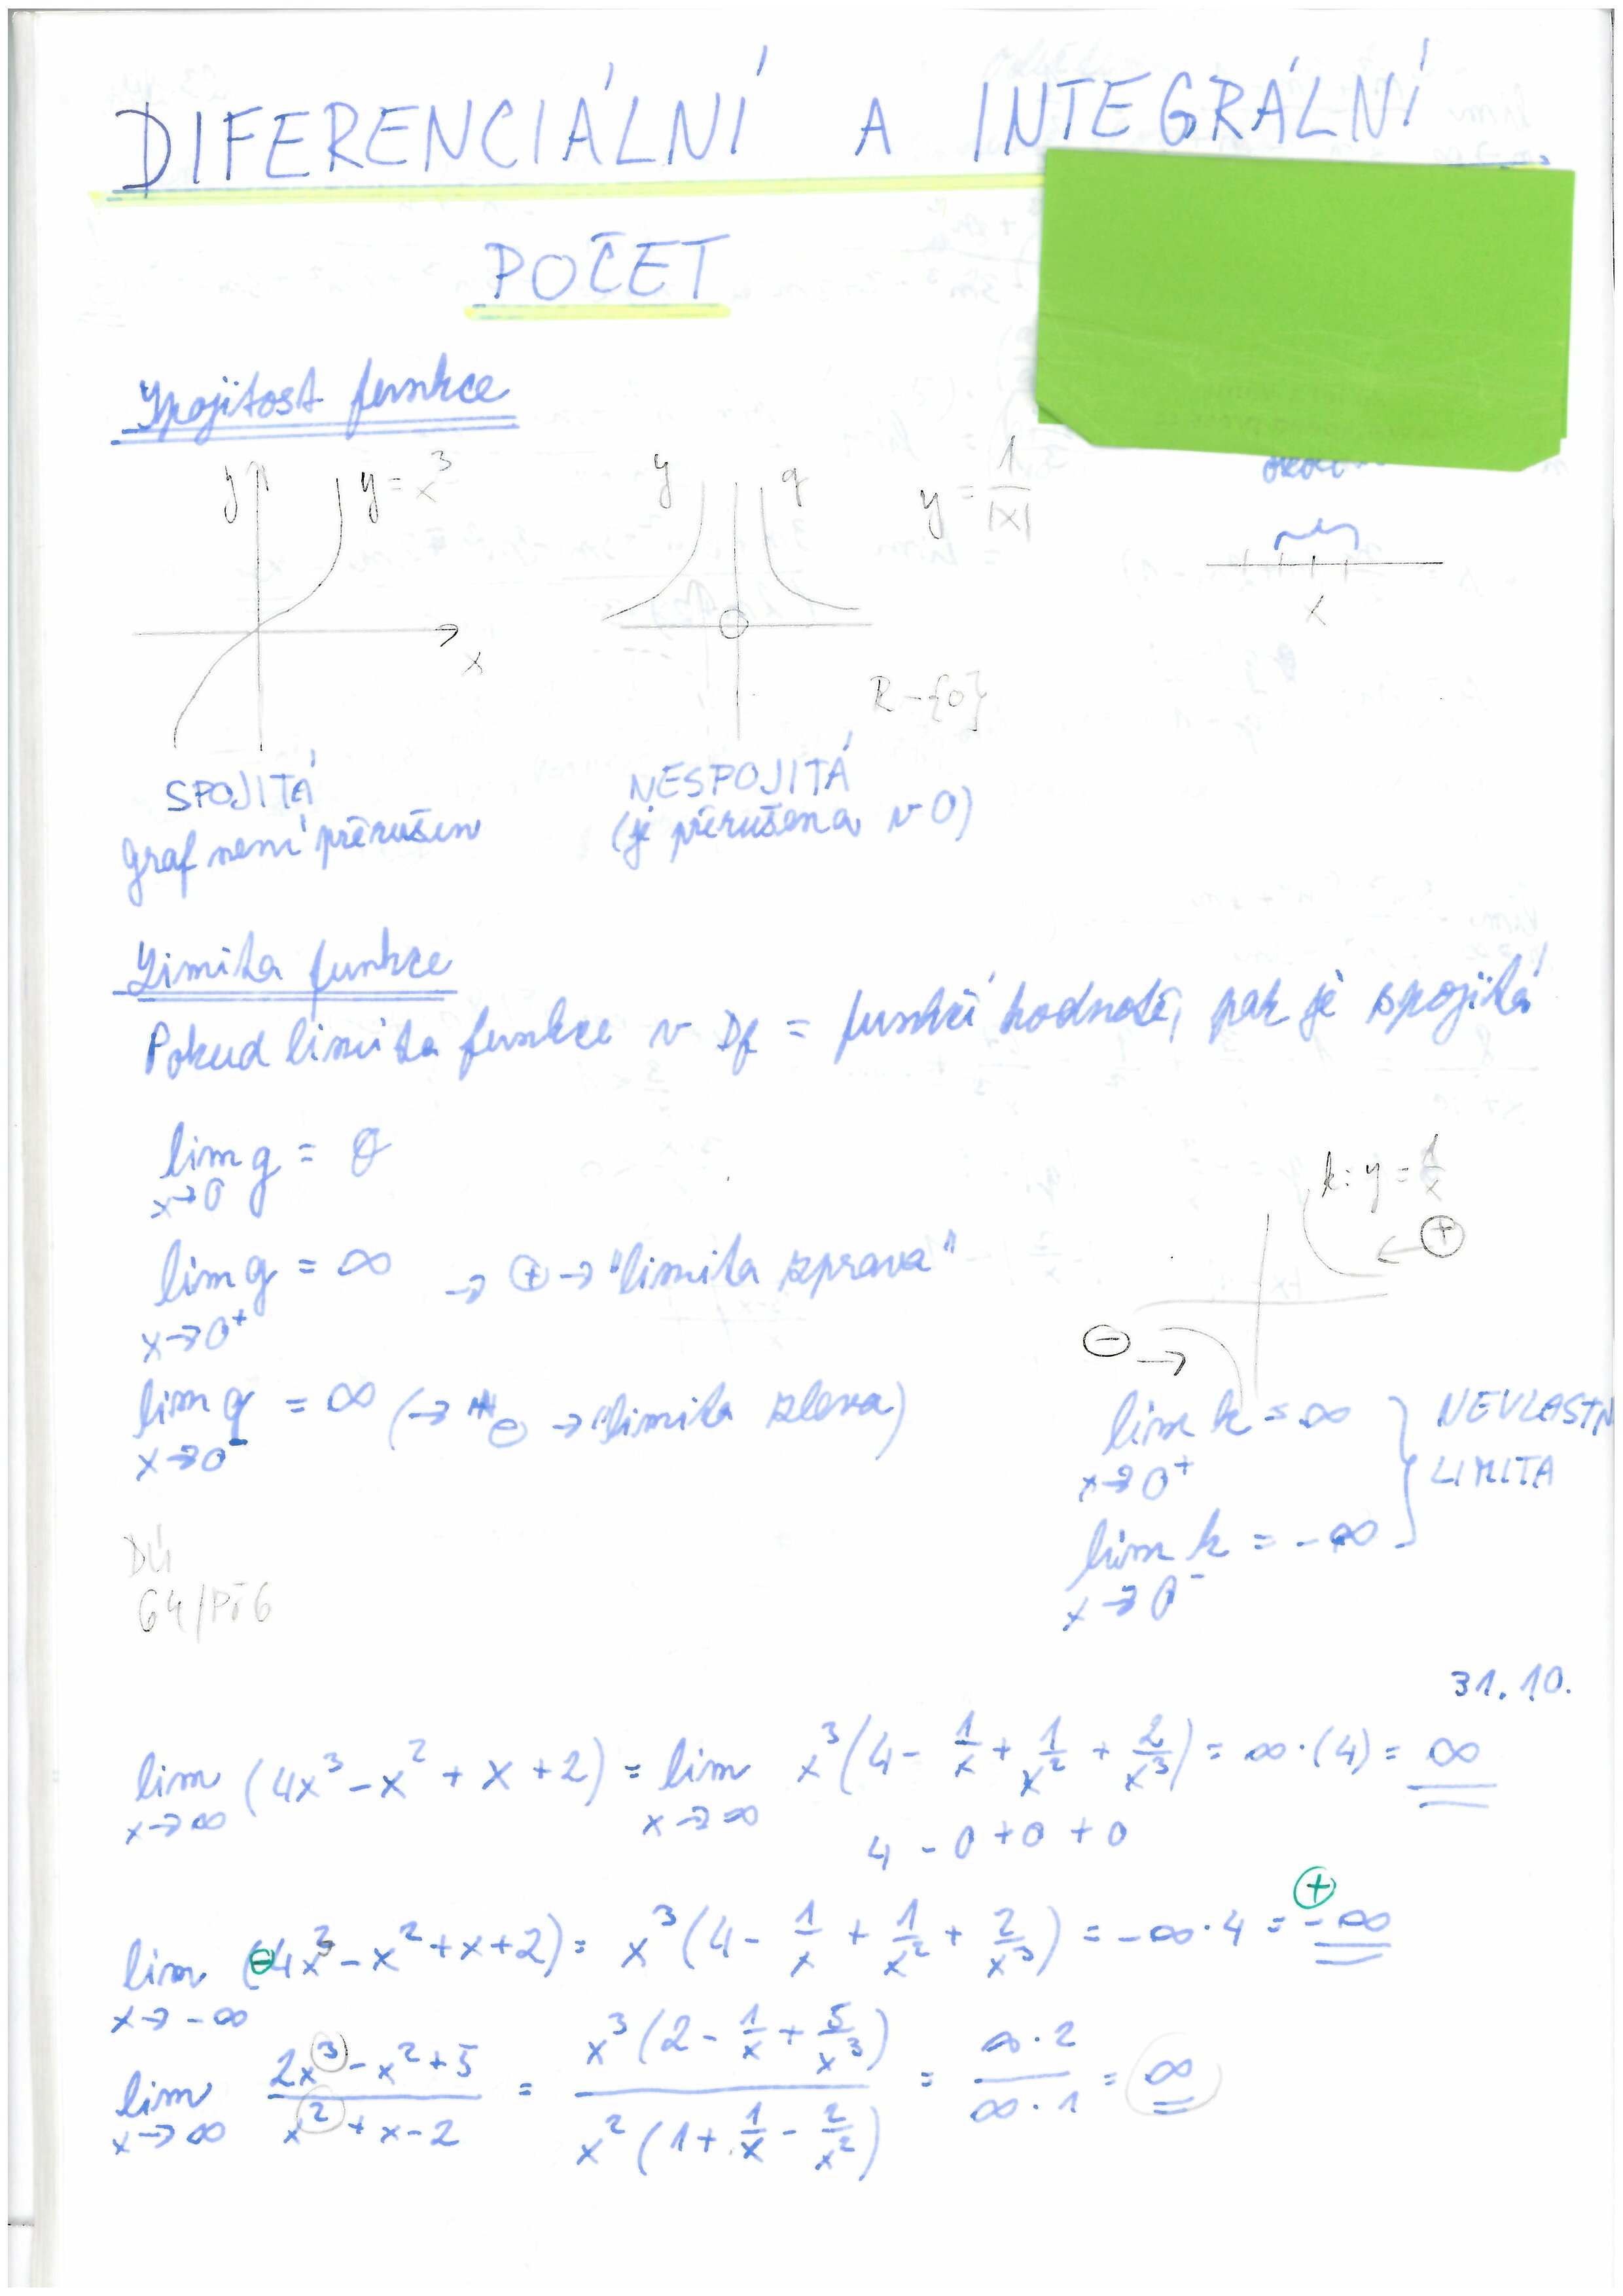 DIFERENCIÁLNÍ A INTEGRÁLNÍ
POČET
Spojitost funkce
y y = x³
x
y g
y = 1/|x|
R - {0}
x
SPOJITÁ
graf není přerušen
NESPOJITÁ
(je přerušena v 0)
Limita funkce
Pokud limita funkce v Df = funkční hodnotě, pak je spojitá
lim g =
x→0
lim g = ∞ → ⊕ → "limita zprava"
x→0⁺
lim g = ∞ (→ ⊖ → "limita zleva)
x→0⁻
k: y = 1/x
⊕
⊖ →
lim k = ∞
x→0⁺
lim k = -∞
x→0⁻
NEVLASTN
LIMITA
DÚ
64/Př6
31.10.
lim (4x³ - x² + x + 2) = lim x³(4 - 1/x + 1/x² + 2/x³) = ∞·(4) = ∞
x→∞ x→∞
4 - 0 + 0 + 0
⊕
lim (⊖4x³ - x² + x + 2) = x³(4 - 1/x + 1/x² + 2/x³) = -∞·4 = -∞
x→-∞
lim (2x³ - x² + 5)/(x² + x - 2) = x³(2 - 1/x + 5/x³)/x²(1 + 1/x - 2/x²) = ∞·2/∞·1 = ∞
x→∞